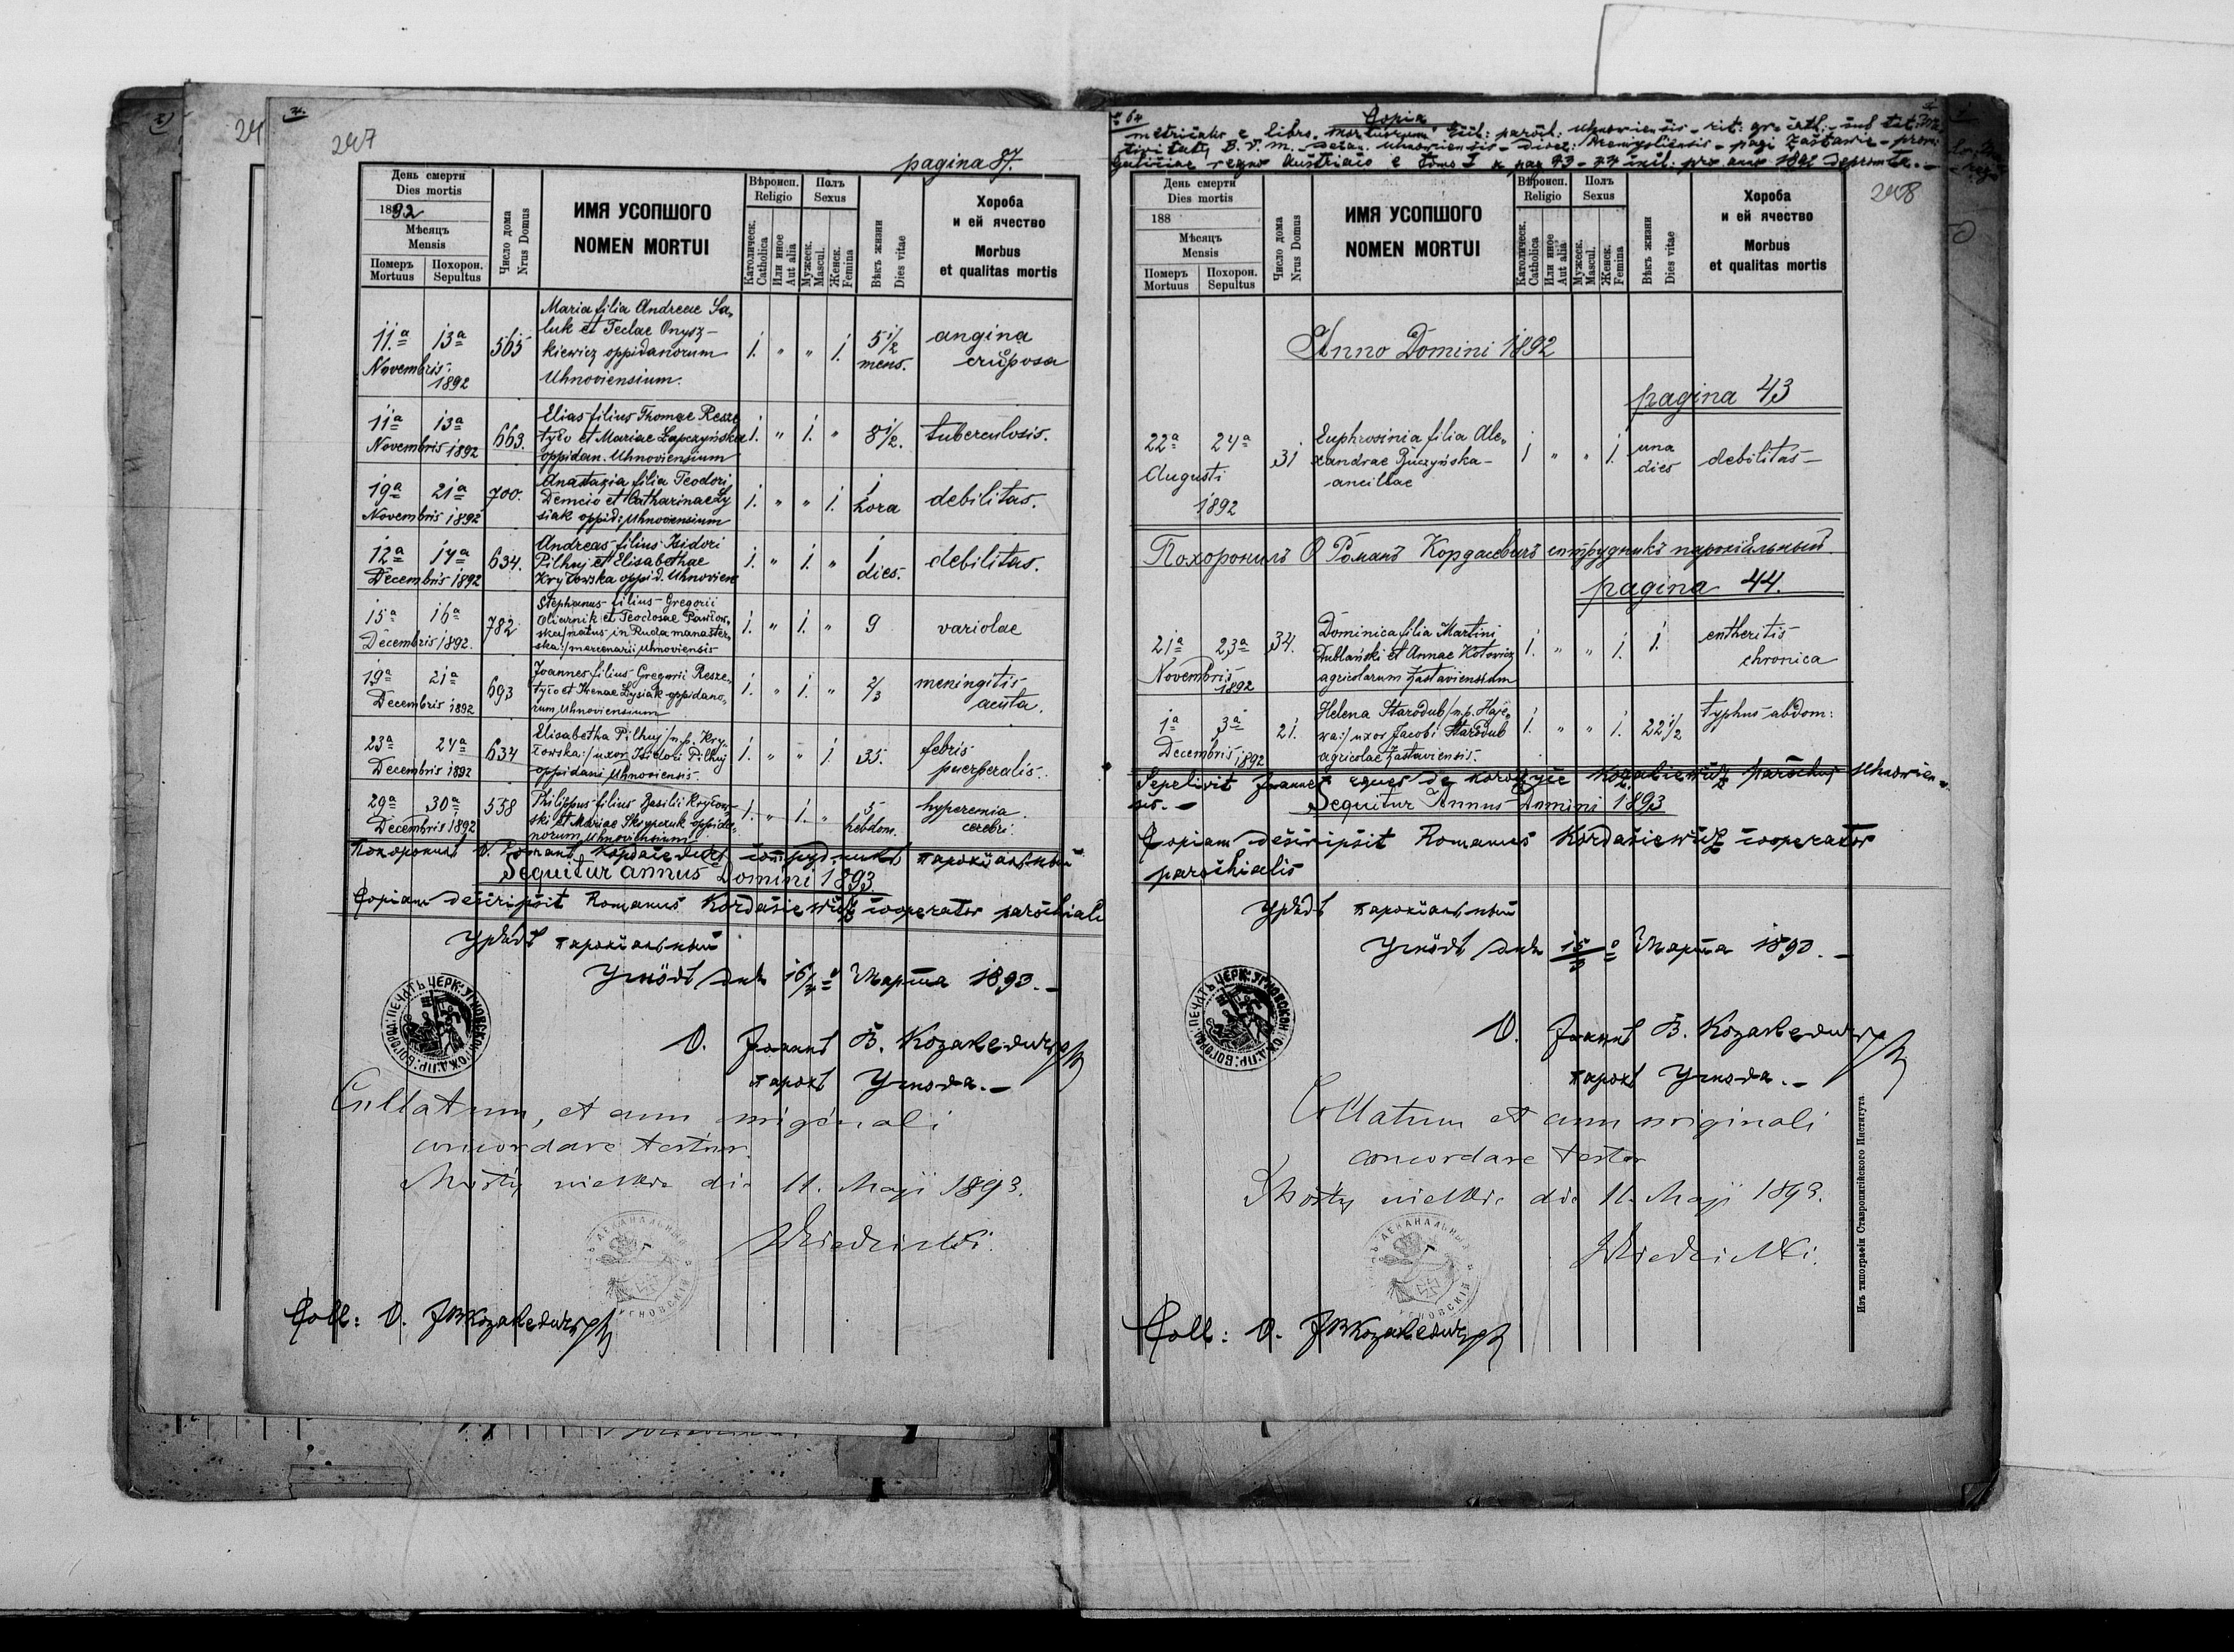 247
pagina 87.
День смерти
Dies mortis
1892
Мѣсяцъ
Mensis
Померъ
Mortuus
Похорон.
Sepultus
Число дома
Nrus Domus
ИМЯ УСОПШОГО
NOMEN MORTUI
Вѣроисп.
Religio
Католическ.
Catholica
Или иное
Aut alia
Полъ
Sexus
Мужеск.
Mascul.
Женск.
Femina
Вѣкъ жизни
Dies vitae
Хороба
и ей ячество
Morbus
et qualitas mortis
11.a 13a
Novembris
1892
565
Maria filia Andreae Sa„
luk et Teclae Onysz-
kiewicz oppidanorum
Uhnoviensium.
1. „ „ 1.
5 1/2
mens.
angina
crupposa
11a 13a
Novembris 1892
663.
Elias filius Thomae Resze
tyło et Mariae Łapczyńska
oppidan. Uhnoviensium
1. „ 1. „
8 1/2.
tuberculosis.
19a 21a
Novembris 1892
700.
Anastazia filia Teodori
Demcio et Catharinae Ly
siak oppid: Uhnoviensium
1. „ „ 1.
1
hora
debilitas.
12a 14a
Decembris 1892
634.
Andreas filius Isidori
Pilhuj et Elisabethae
Kryłowska oppid. Uhnovien
1. „ 1. „
1
dies.
debilitas.
15a 16a
Decembris 1892.
782
Stephanus filius Gregorii
Oliarnik et Teodosae Pawłow„
ska /natus in Ruda manaster„
ska:/ mercenarii Uhnoviensis
1. „ 1. „
9
variolae
19a 21a
Decembris 1892
693
Joannes filius Gregorii Resze„
tyło et Irenae Lysiak oppidano„
rum Uhnoviensium
1. „ 1. „
2/3
meningitis
acuta.
23a 24a
Decembris 1892
634
Elisabetha Pilhuj /n.p. Kry„
łowska:/ uxor Isidori Pilhuj
oppidani Uhnoviensis.
1. „ „ 1.
35.
febris
puerperalis.
29a 30a
Decembris 1892
558
Philippus filius Basilii Kryłow„
ski et Mariae Skrypczuk oppida„
norum Uhnoviensium
1. „ 1. „
5
hebdom.
hyperemia
cerebri.
Похоронилъ О. Романъ Кордасевичъ сотрудникъ парохіяльный
Sequitur annus Domini 1893
Copiam descripsit Romanus Kordasiewicz cooperator parochiali
Урядъ парохіяльный
Угновъ дня 15/3 Марта 1893.-
О. Іоаннъ В. Козакевичъ
парохъ Угнова.-
Collatum, et cum originali
concordare testor.
Mosty wielkie die 11. Maji 1893.
Coll: О. ІВКозакевичъ
ПЕЧАТЬ ЦЕРК: УГНОВСКОИ
ДЕКАНАЛЬНЫЙ
УГНОВСКІЙ
Copia
metricalis e libro "Mortuorum" Eccl: paroch: Uhnoviensis - rit: gr. cath. - sub tit: Na
tivitatis B.V.M. - decan. Uhnoviensis - dioec: Premysliensis - pagi Zastawie - prov:
Galiciae regno Austriaco e tomo I a pag 43 - 44 incl: pro anno 1892 deprompta.-
248
День смерти
Dies mortis
188
Мѣсяцъ
Mensis
Померъ
Mortuus
Похорон.
Sepultus
Число дома
Nrus Domus
ИМЯ УСОПШОГО
NOMEN MORTUI
Вѣроисп.
Religio
Католическ.
Catholica
Или иное
Aut alia
Полъ
Sexus
Мужеск.
Mascul.
Женск.
Femina
Вѣкъ жизни
Dies vitae
Хороба
и ей ячество
Morbus
et qualitas mortis
Anno Domini 1892
pagina 43
22a 24a
Augusti
1892
31
Euphrosinia filia Ale„
xandrae Buczyńska-
ancillae
1 „ „ 1.
una
dies
debilitas-
Похоронилъ О Романъ Кордасевичъ сотрудникъ парохіяльный
pagina 44.
21a 23a
Novembris
1892
34.
Dominica filia Martini
Dublański et Annae Kotowicz
agricolarum Zastaviensium
1. „ „ 1.
1.
entheritis
chronica
1a 3a
Decembris 1892
21.
Helena Starodub /n.p. Haje„
wa:/ uxor Jacobi Starodub
agricolae Zastaviensis.
1. „ „ 1.
22 1/2
typhus abdom:
Sepelivit Joannes eques de Korostyce Kozakiewicz parochus Uhnovien„
sis.-
Sequitur Annus Domini 1893
Copiam descripsit Romanus Kordasiewicz cooperator
parochialis
Урядъ парохіяльный
Угновъ дня 15/3 Марта 1893.-
О. Іоаннъ В. Козакевичъ
парохъ Угнова.-
Collatum et cum originali
concordare testor
Mosty wielkie die 11. Maji 1893.
Coll: О. ІВКозакевичъ
ПЕЧАТЬ ЦЕРК: УГНОВСКОИ
ДЕКАНАЛЬНЫЙ
УГНОВСКІЙ
Изъ типографіи Ставропигійского Института